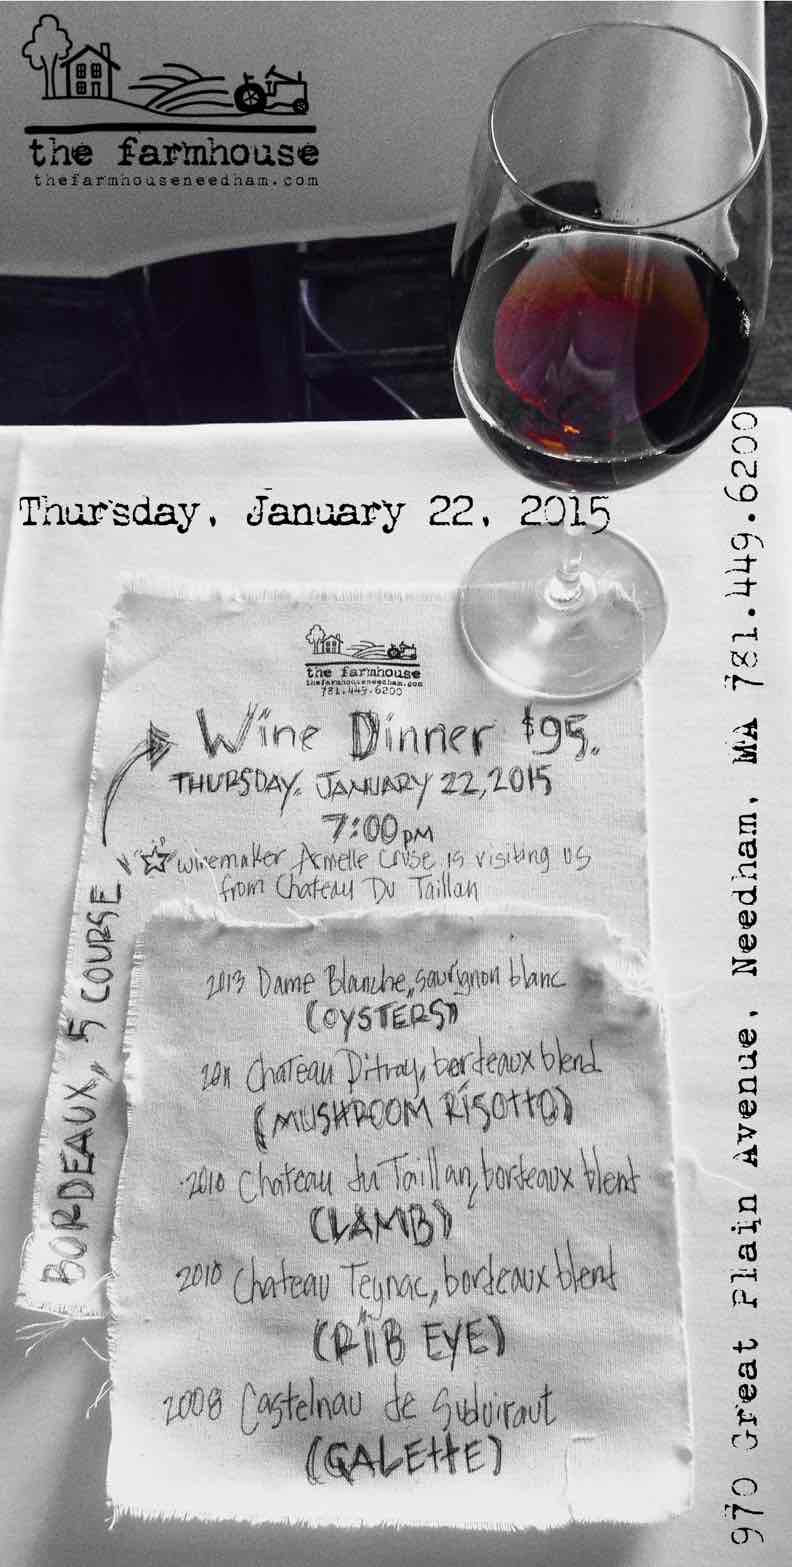 the farmhouse
thefarmhouseneedham.com
Thursday, January 22, 2015
970 Great Plain Avenue, Needham, MA 781.449.6200
the farmhouse
thefarmhouseneedham.com
781.449.6200
Wine Dinner $95.
THURSDAY, JANUARY 22, 2015
7:00pm
winemaker Armelle Cruse is visiting us
from Chateau Du Taillan
BORDEAUX, 5 COURSE
2013 Dame Blanche, sauvignon blanc
(OYSTERS)
2011 Chateau Ditray, bordeaux blend
(MUSHROOM RISOTTO)
2010 Chateau du Taillan, bordeaux blend
(LAMB)
2010 Chateau Teynac, bordeaux blend
(RIB EYE)
2008 Castelnau de Suduiraut
(GALETTE)